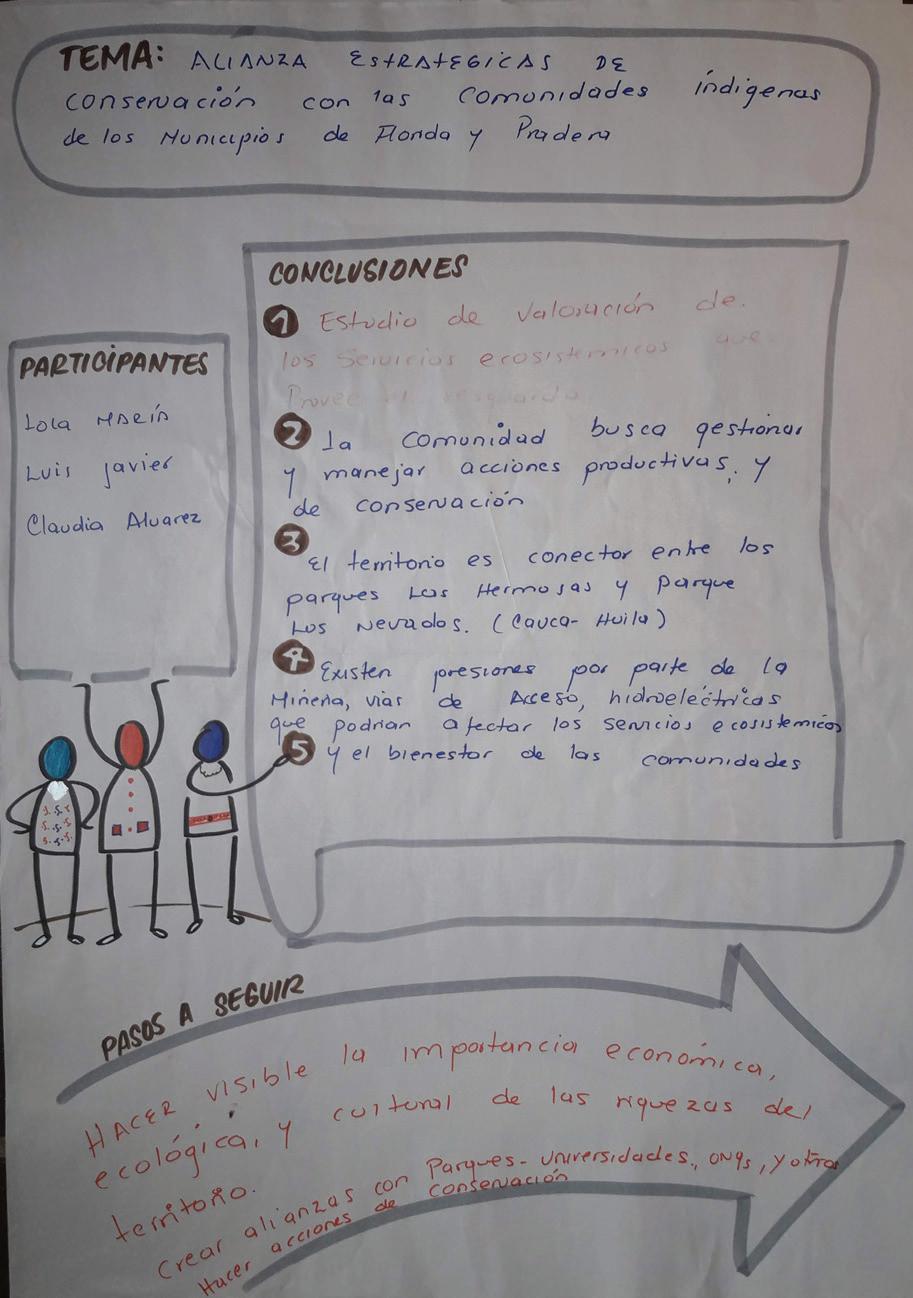 TEMA: ALIANZA ESTRATEGICAS DE
conservación con las comunidades indigenas
de los Municipios de Florida y Pradera
CONCLUSIONES
1 Estudio de valoración de
los Servicios ecosistemicos que
Provee el resguardo
2 La comunidad busca gestionar
y manejar acciones productivas, y
de conservación
3
El territorio es conector entre los
parques Las Hermosas y parque
Los Nevados. (Cauca-Huila)
4 Existen presiones por parte de la
Minería, vias de Acceso, hidroeléctricas
que podrian afectar los servicios ecosistemicos
5 y el bienestar de las comunidades
PARTICIPANTES
Lola MARÍA
Luis Javier
Claudia Alvarez
PASOS A SEGUIR
HACER visible la importancia económica,
ecológica, y cultural de las riquezas del
territorio.
Crear alianzas con Parques- universidades, ONGs, y otros
Hacer acciones de conservación